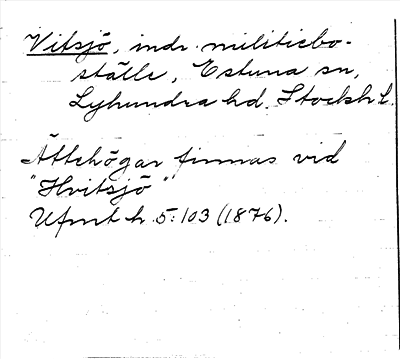 Vitsjö, indr. militiebo-
ställe, Estuna sn,
Lyhundra hd. Stockh l.
Ättehögar finnas vid
"Hvitsjö"
Ufmt h. 5:103 (1876).